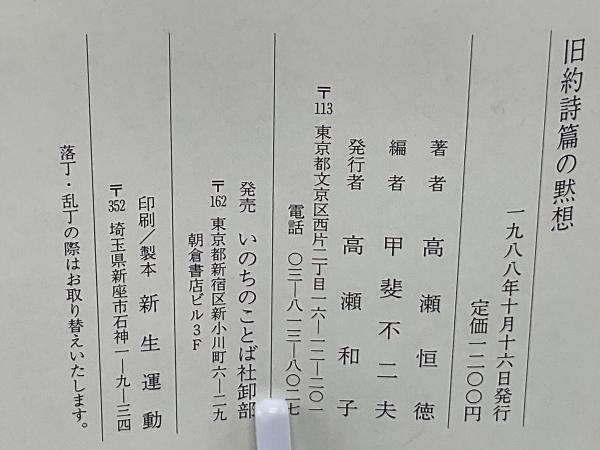 旧約詩篇の黙想
一九八八年十月十六日発行
定価一二〇〇円
著者 高瀬恒徳
編者 甲斐不二夫
発行者 高瀬和子
〒113 東京都文京区西片二丁目一六―一二―二〇一
電話 〇三―八一三―八〇二七
発売 いのちのことば社卸部
〒162 東京都新宿区新小川町六―二九
朝倉書店ビル3F
印刷/製本 新生運動
〒352 埼玉県新座市石神一―九―三四
落丁・乱丁の際はお取り替えいたします。